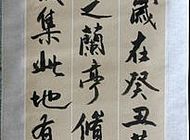 歲在癸丑暮
之蘭亭脩
咸集此地有